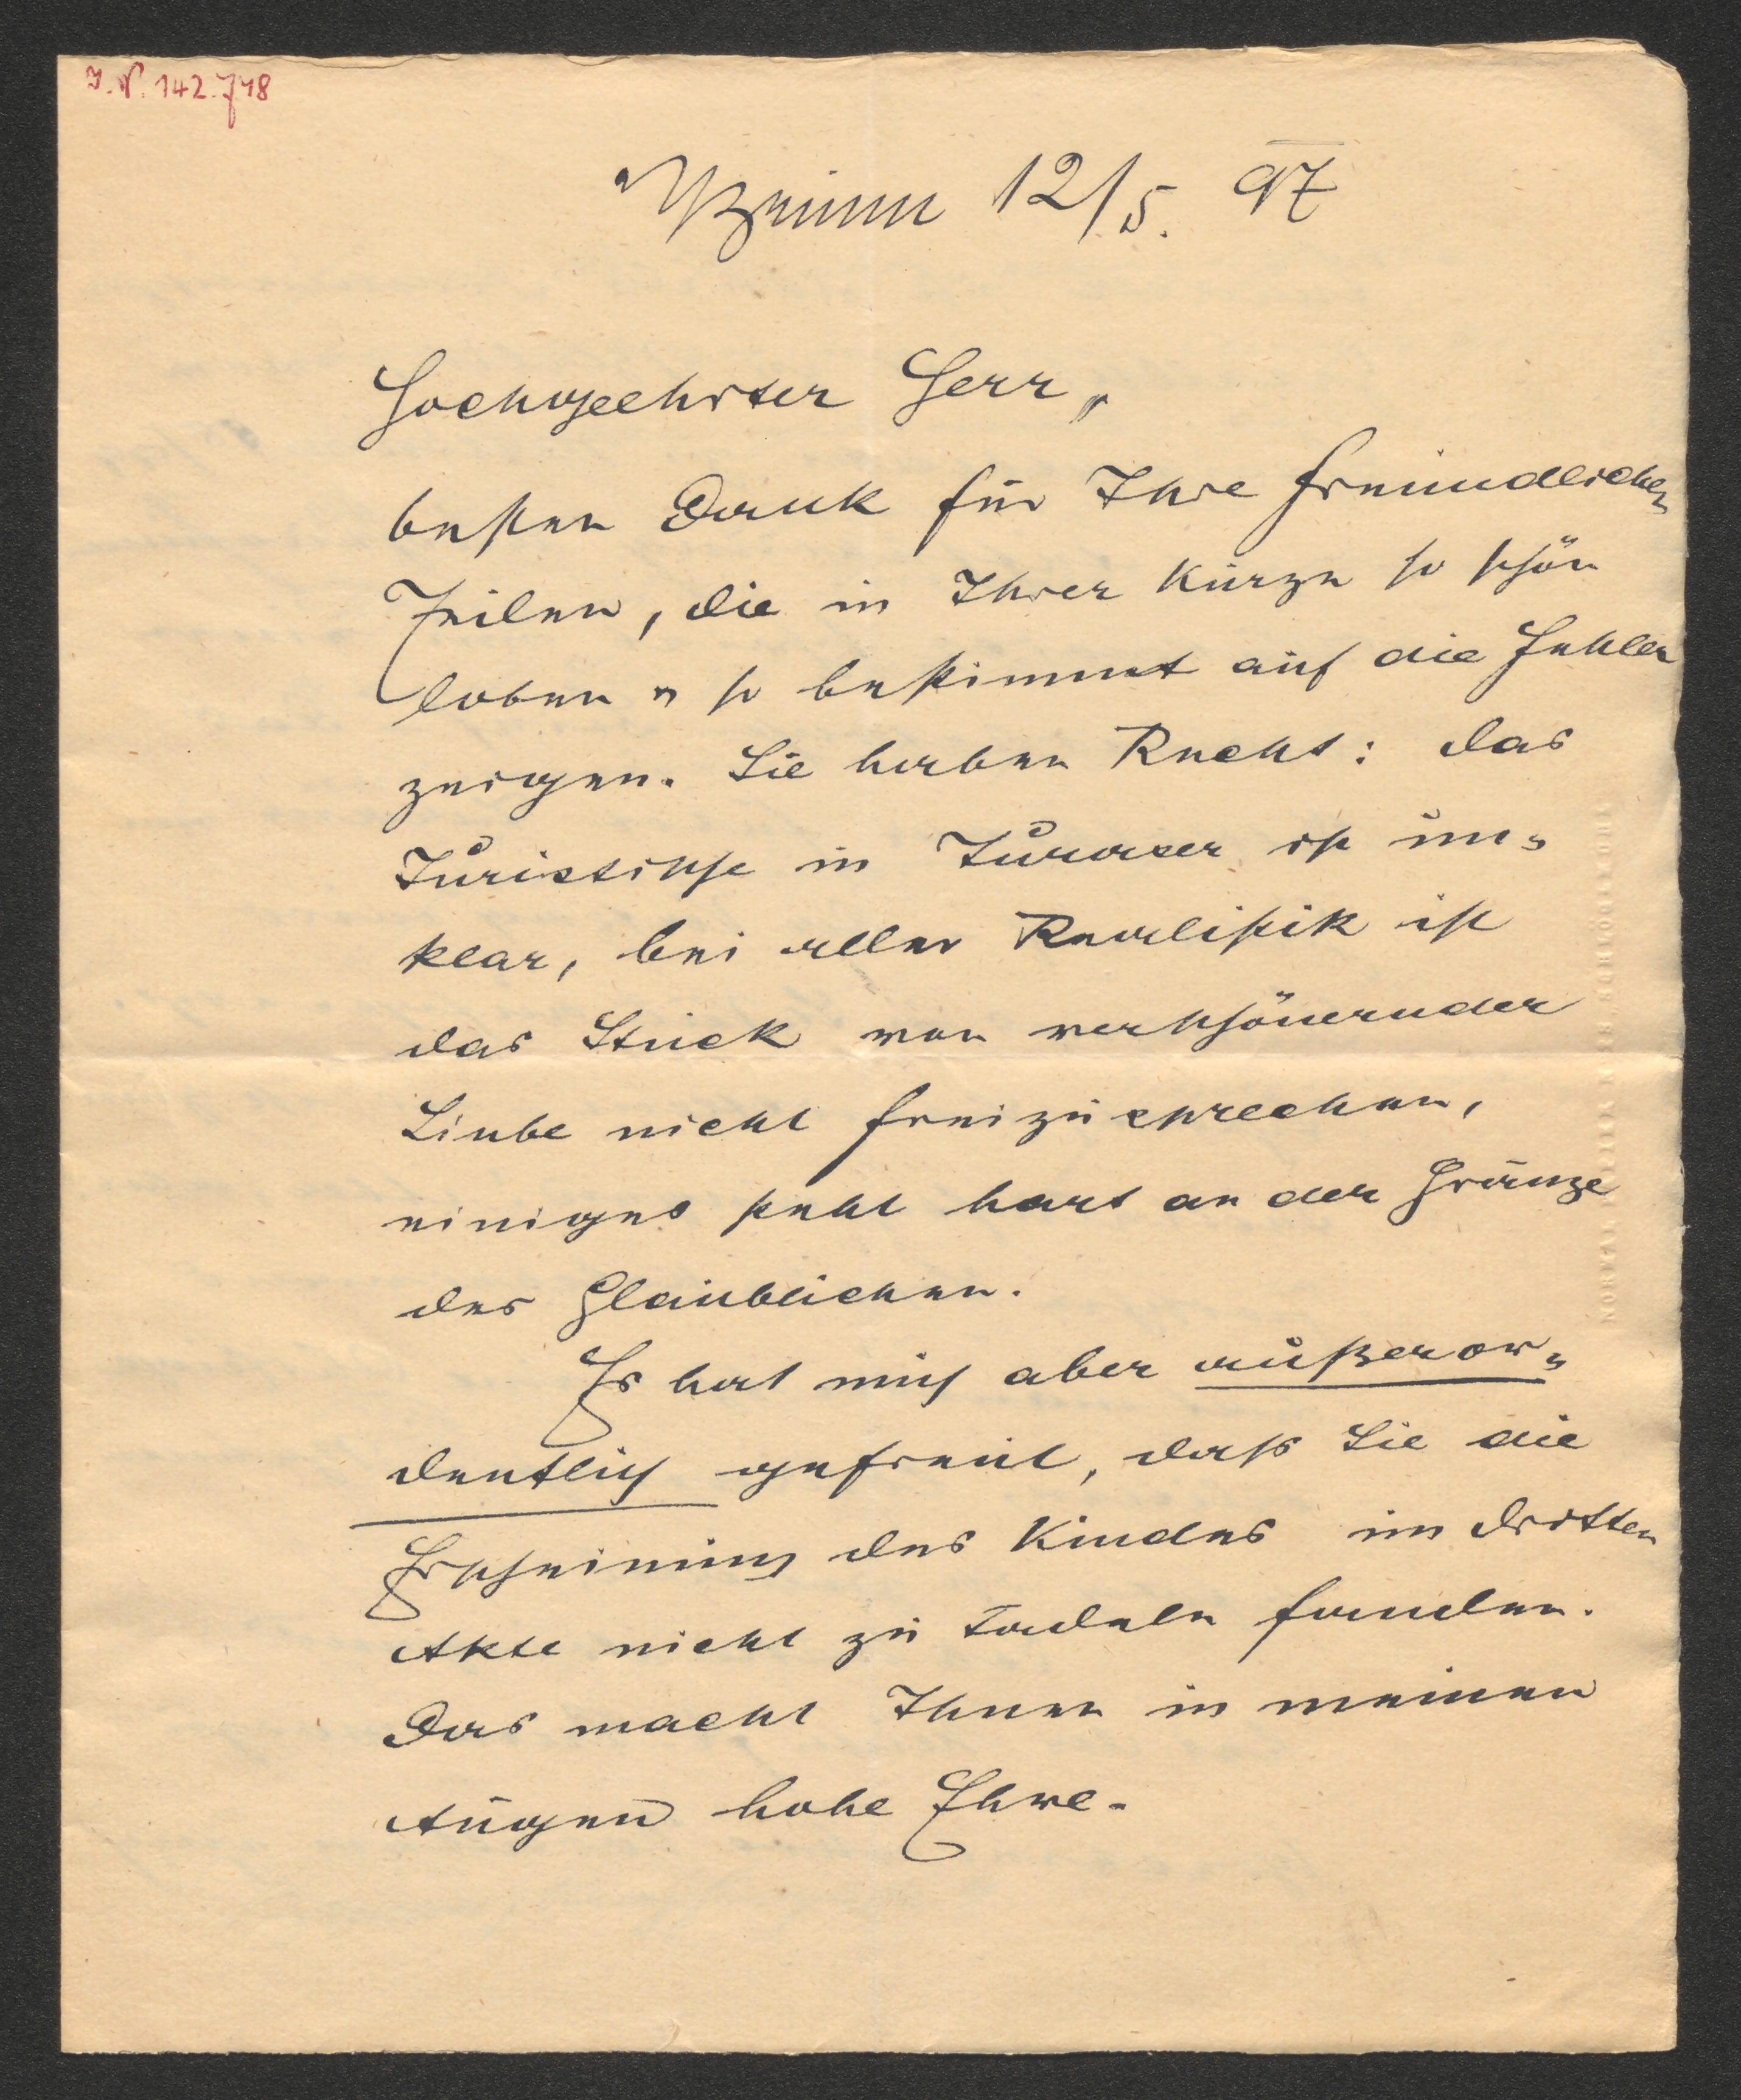 I.N. 142.718
Brünn 12/5. 97
Hochgeehrter Herr,
besten Dank für Ihre freundlichen
Zeilen, die in Ihrer Kürze so schön
loben u so bestimmt auf die Fehler
zeigen. Sie haben Recht: das
Juristische in ist un-
klar, bei aller Realistik ist
das Stück von verschönernder
Liebe nicht freizusprechen,
einiges steht hart an der Gränze
des Glaublichen.
Es hat mich aber außeror-
dentlich gefreut, dass Sie die
Erscheinung des Kindes im dritten
Akte nicht zu tadeln fanden.
Das macht Ihnen in meinen
Augen hohe Ehre.